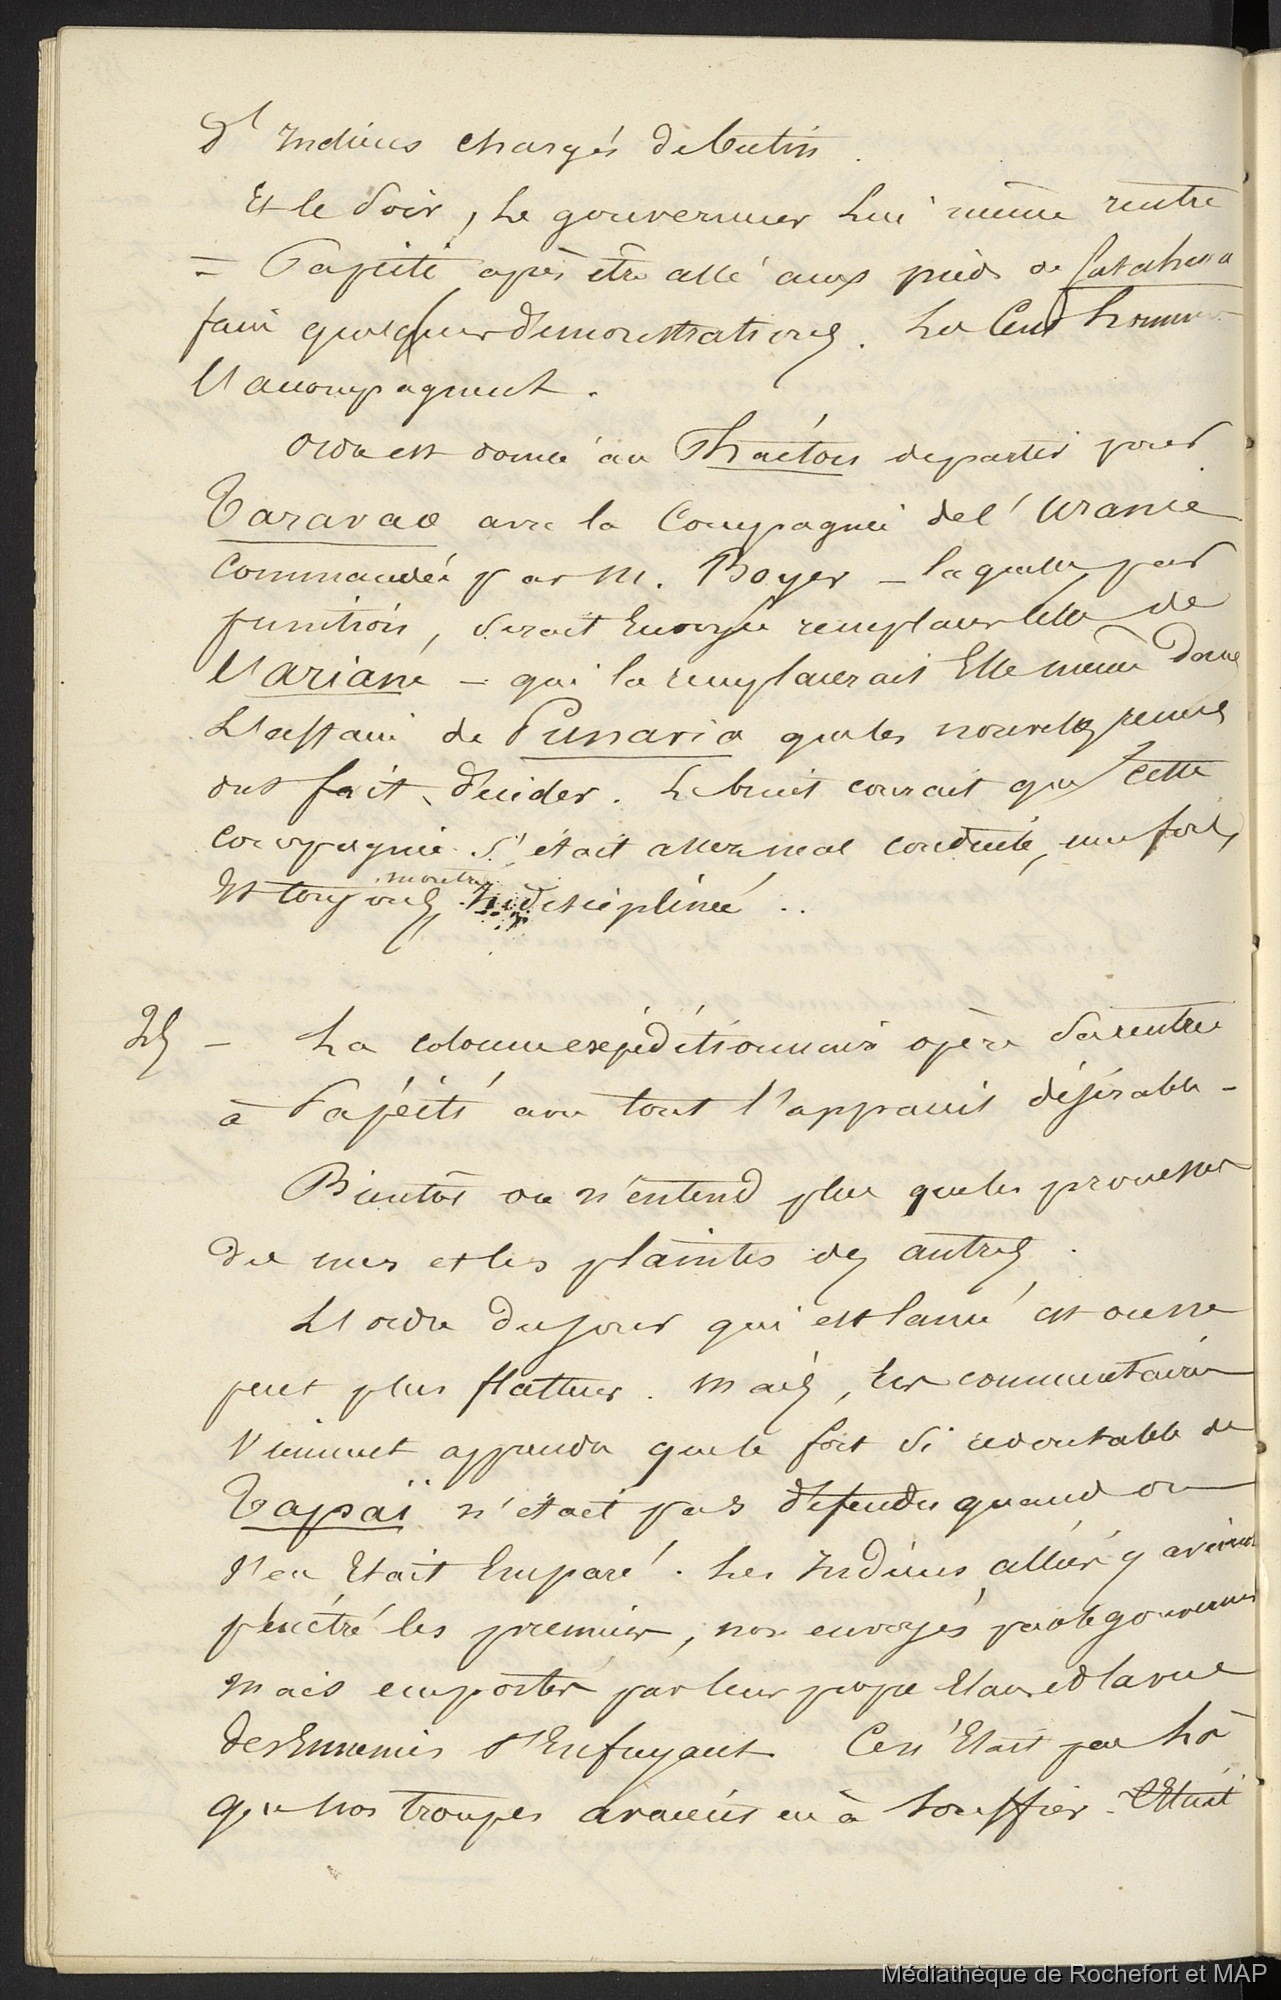 d' Indiens chargés de butin.
Et le soir, le gouverneur lui même rentre
= Papeïti après être allé aux pieds de
faire quelques démonstrations. Les Cent hommes
l'accompagnent.
Ordre est donné au Phaéton de partir pour
Taravao avec la Compagnie de l'Uranie
commandée par M. Boyer – laquelle par
punition, serait Envoyée remplacer celle de
l'ariane – qui la remplacerait Elle même dans
L'affaire de Punavia que les nouvelles
ont fait décider. Le bruit courait que cette
compagnie s'était assez mal conduite, une fois,
Et toujours montrée Indisciplinée ..
25 – La colonne expéditionnaire opère sa rentrée
à Papéïti avec tout l'appareil désirable –
Bientôt on n'entend plus que les prouesses
des uns et les plaintes des autres.
L'ordre du jour qui est lancé est on ne
peut plus flatteur. Mais, les commentaires
viennent apprendre que le fort si redoutable de
Tapaï n'était pas défendu quand on
s'en Etait Emparé. Les Indiens alliés y avaient
pénétré les premiers, non envoyés par le gouverneur
mais emportés par leur propre Elan et la vue
des Ennemis s'Enfuyant Ce n'Etait pas là
que nos troupes avaient eu à souffrir. C'Etait
Médiathèque de Rochefort et MAP